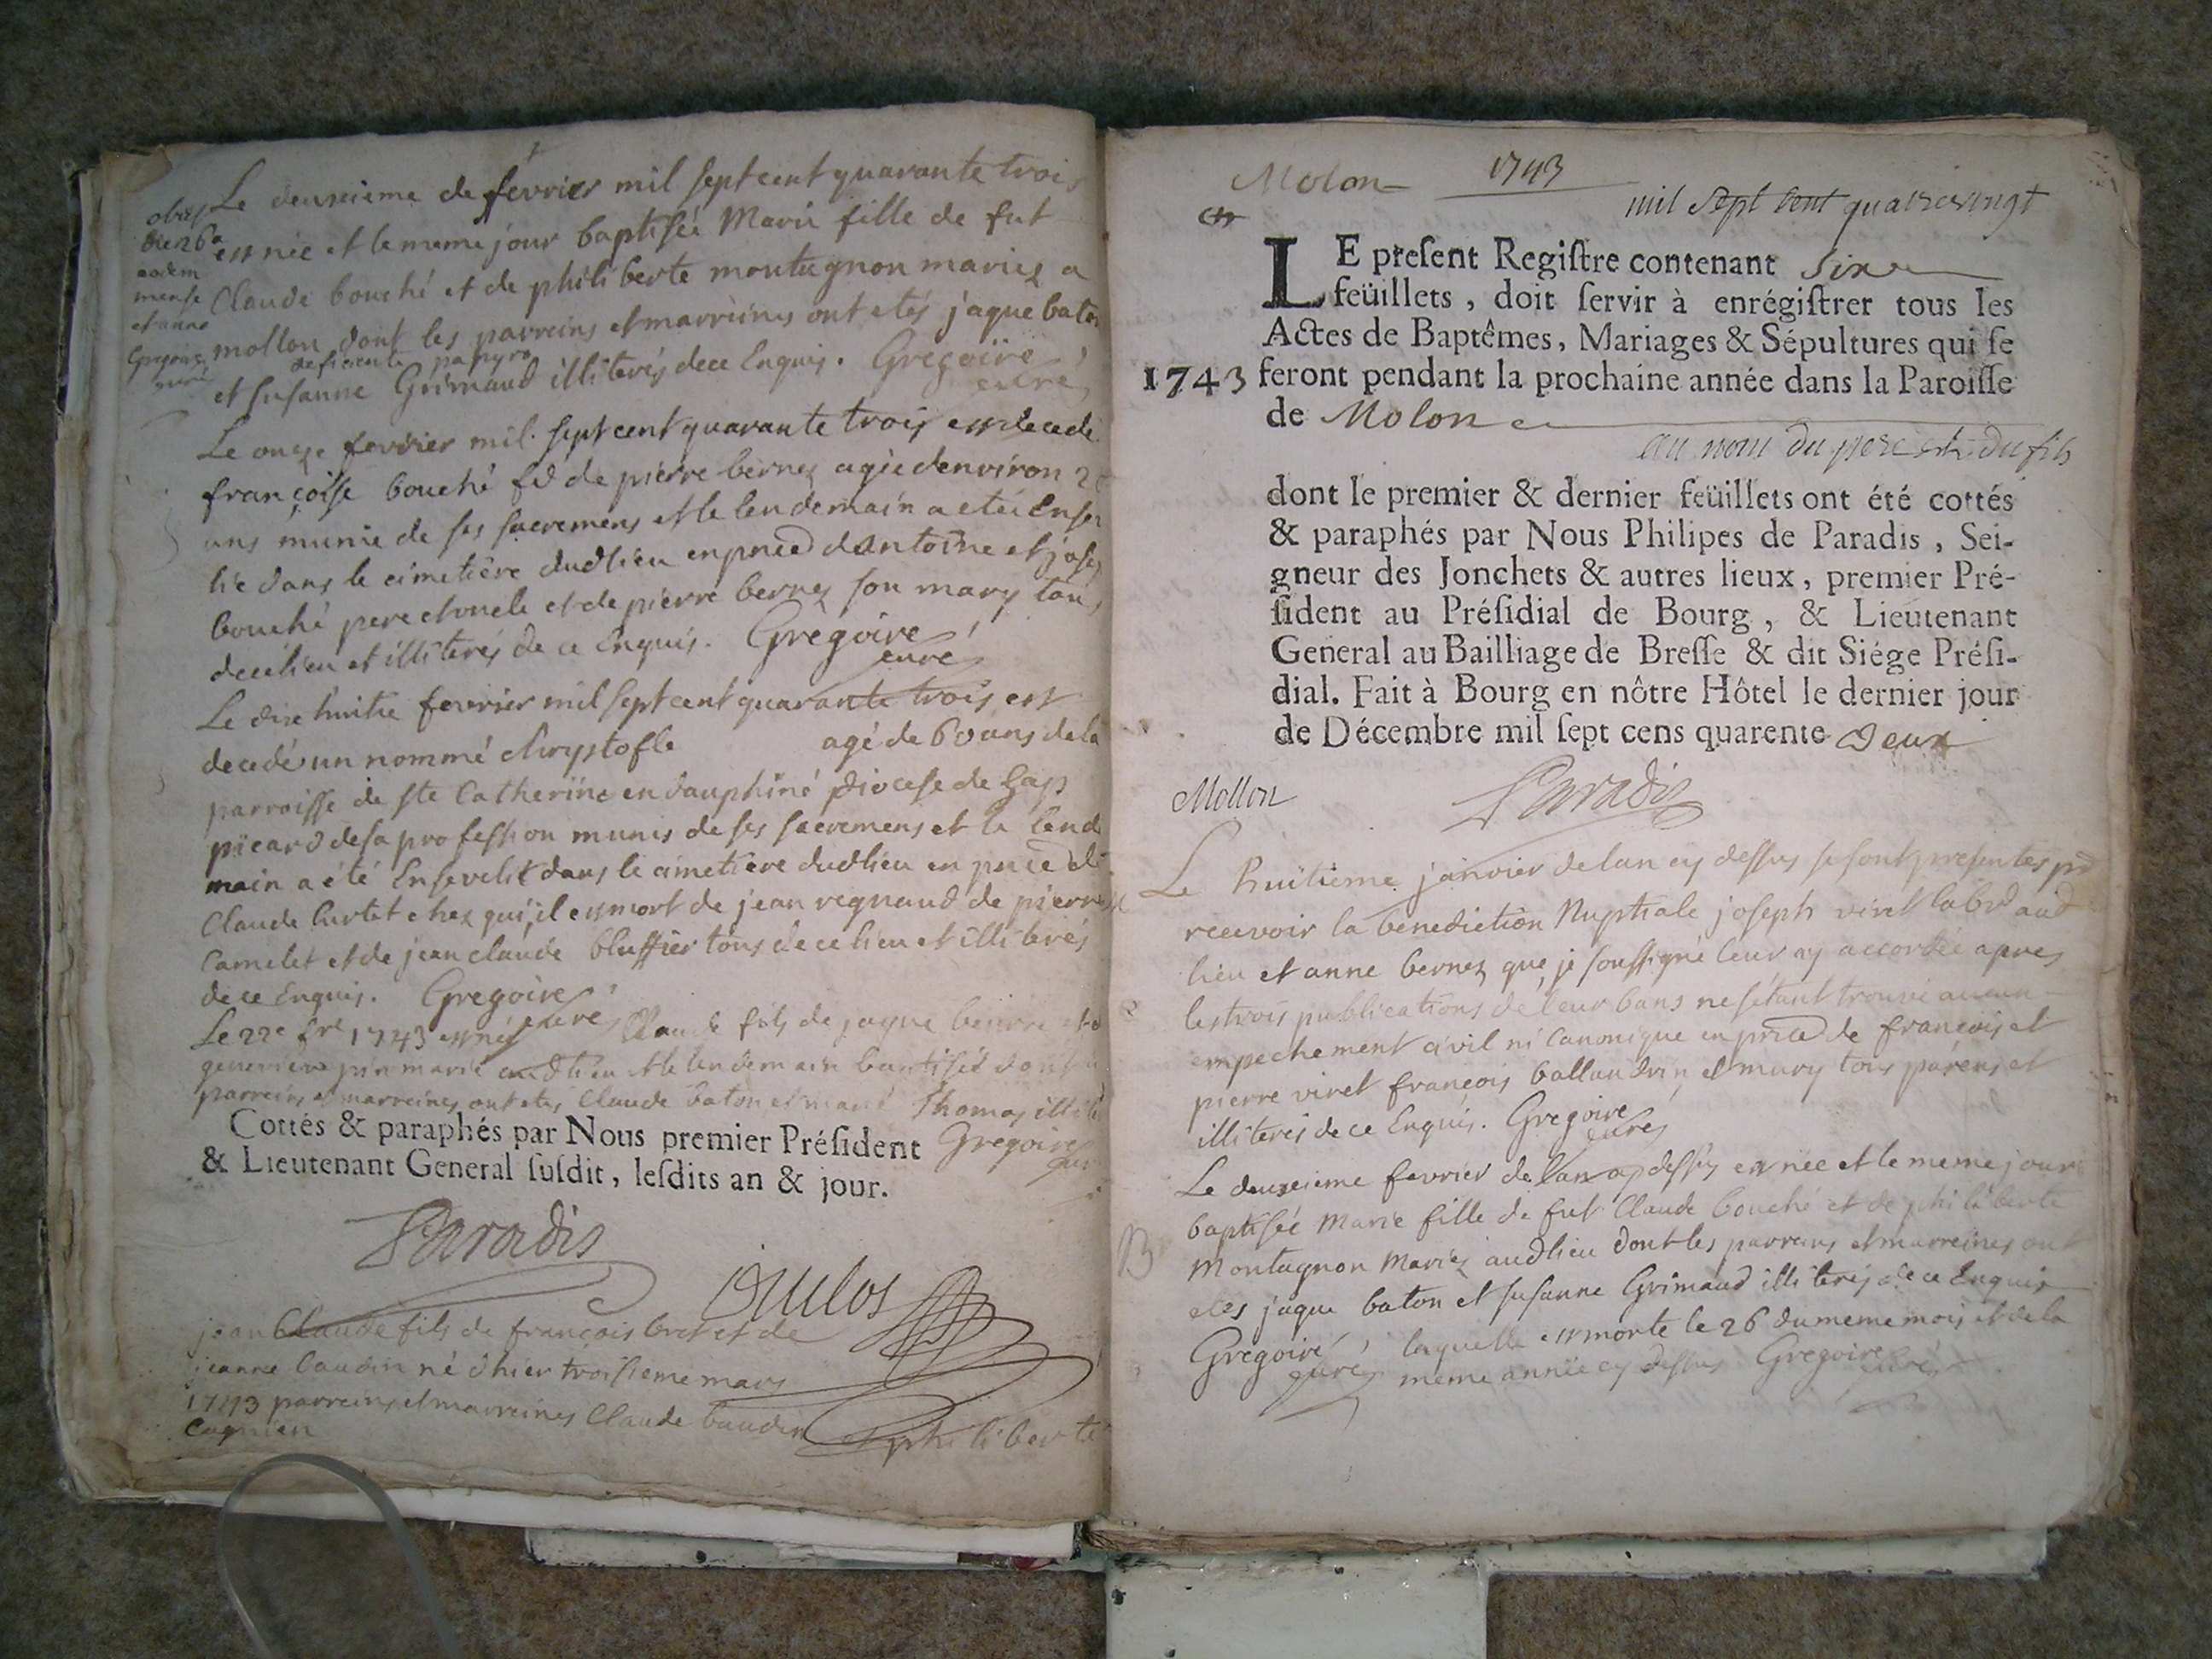 Le deuxieme de fevrier mil sept cent quarante trois
est née et le meme jour baptisée Marie fille de fut
Claude bouché et de philiberte montagnon mariez a
mollon dont les parreins et marreines ont etés jaque baton
et susanne Grimaud illiterés de ce Enquis. Gregoire
curé
obiit
die 26a
eadem
mense
et anno
Gregoire
curé
deficiente papyro
Le onze fevrier mil sept cent quarante trois est decedé
françoise bouché fe de pierre bernez agée denviron
ans munie de ses sacremens et le lendemain a eté Ense
lie dans le cimetière dud lieu en pnce d'antoine et jose
bouché pere et oncle et de pierre bernez son mary tous
de ce lieu et illiterés de ce Enquis. Gregoire
curé
Le dixe huitie fevrier mil sept cent quarante trois est
decedé un nommé chrystofle agé de 60 ans de la
parroisse de ste Catherine en dauphiné diocese de Gap
picard de sa profession munis de ses sacremens et le lend
main a été Ensevelit dans le cimetière dud lieu en pnce de
Claude Curtet chez qui, il est mort de jean regnaud de pierre
Camelet et de jean claude bluffier tous de ce lieu et illiterés
de ce Enquis. Gregoire
curé
Le 22e fre 1743 est né Claude fils de jaque
genevieve pin marié aud lieu et le lendemain baptisé dont
parreins et marreines ont etes Claude baton et marie Thomas
Gregoire
curé
Cottés & paraphés par Nous premier Préſident
& Lieutenant General ſuſdit, leſdits an & jour.
Paradis
jean Claude fils de francois bret et de
jeanne baudin né dhier troisieme mars
1743 parreins et marreines Claude baudin philiberte
Molon 1743
mil sept cent quatrevingt
LE preſent Regiſtre contenant Six
feüillets, doit ſervir à enrégiſtrer tous les
Actes de Baptêmes, Mariages & Sépultures qui ſe
1743 feront pendant la prochaine année dans la Paroiſſe
de Molon
au nom du pere et du fils
dont le premier & dernier feüillets ont été cottés
& paraphés par Nous Philipes de Paradis, Sei-
gneur des Jonchets & autres lieux, premier Pré-
ſident au Préſidial de Bourg, & Lieutenant
General au Bailliage de Breſſe & dit Siége Préſi-
dial. Fait à Bourg en nôtre Hôtel le dernier jour
de Décembre mil ſept cens quarente Deux
Mollon
Paradis
Le huitieme janvier de lan cy dessus se sont presentes pr
recevoir la benediction Nuptiale joseph viret labr aud
lieu et anne bernez que, je soussigné leur ay accordée apres
les trois publications de leur bans ne sétant trouvé aucun
empechement civil ni Canonique en pnce de francois et
pierre viret francois ballandrin et mury tous parens et
illiterés de ce Enquis. Gregoire
curé
Le deuxieme fevrier de lan cy dessus est née et le meme jour
baptisée Marie fille de fut Claude bouché et de philiberte
B
Montagnon Mariez aud lieu dont les parreins et marreines ont
etés jaque baton et susanne Grimaud illiterés de ce Enquis
Gregoire curé laquelle est morte le 26 du meme mois et de la
meme année cy dessus Gregoire curé